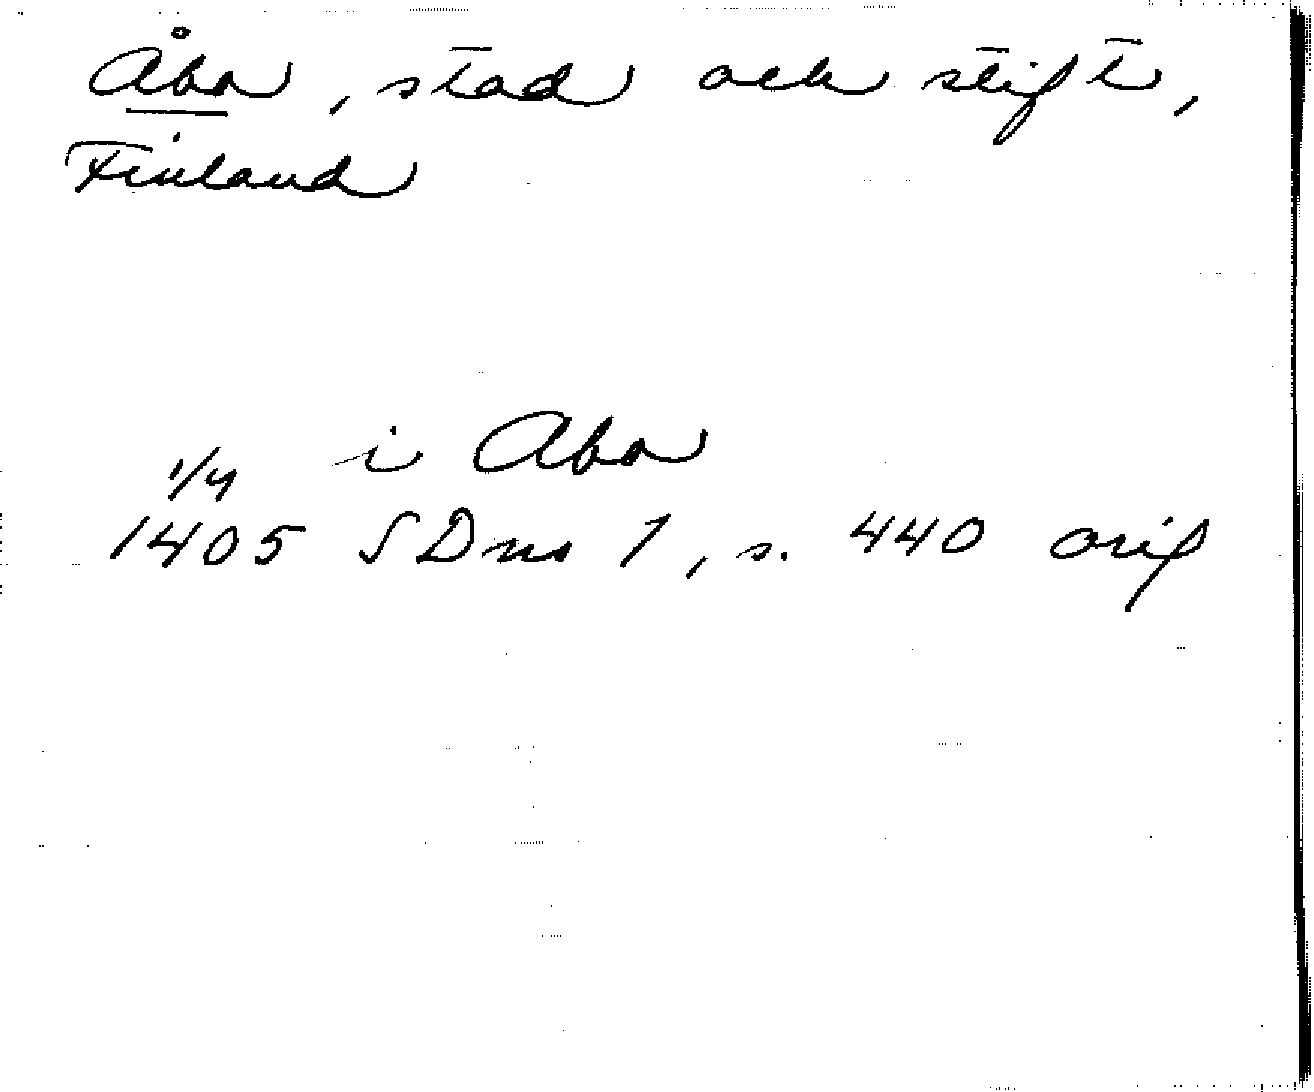 Åbo, stad och stift,
Finland
i Abo
1/4
1405 SDns 1, s. 440 orig